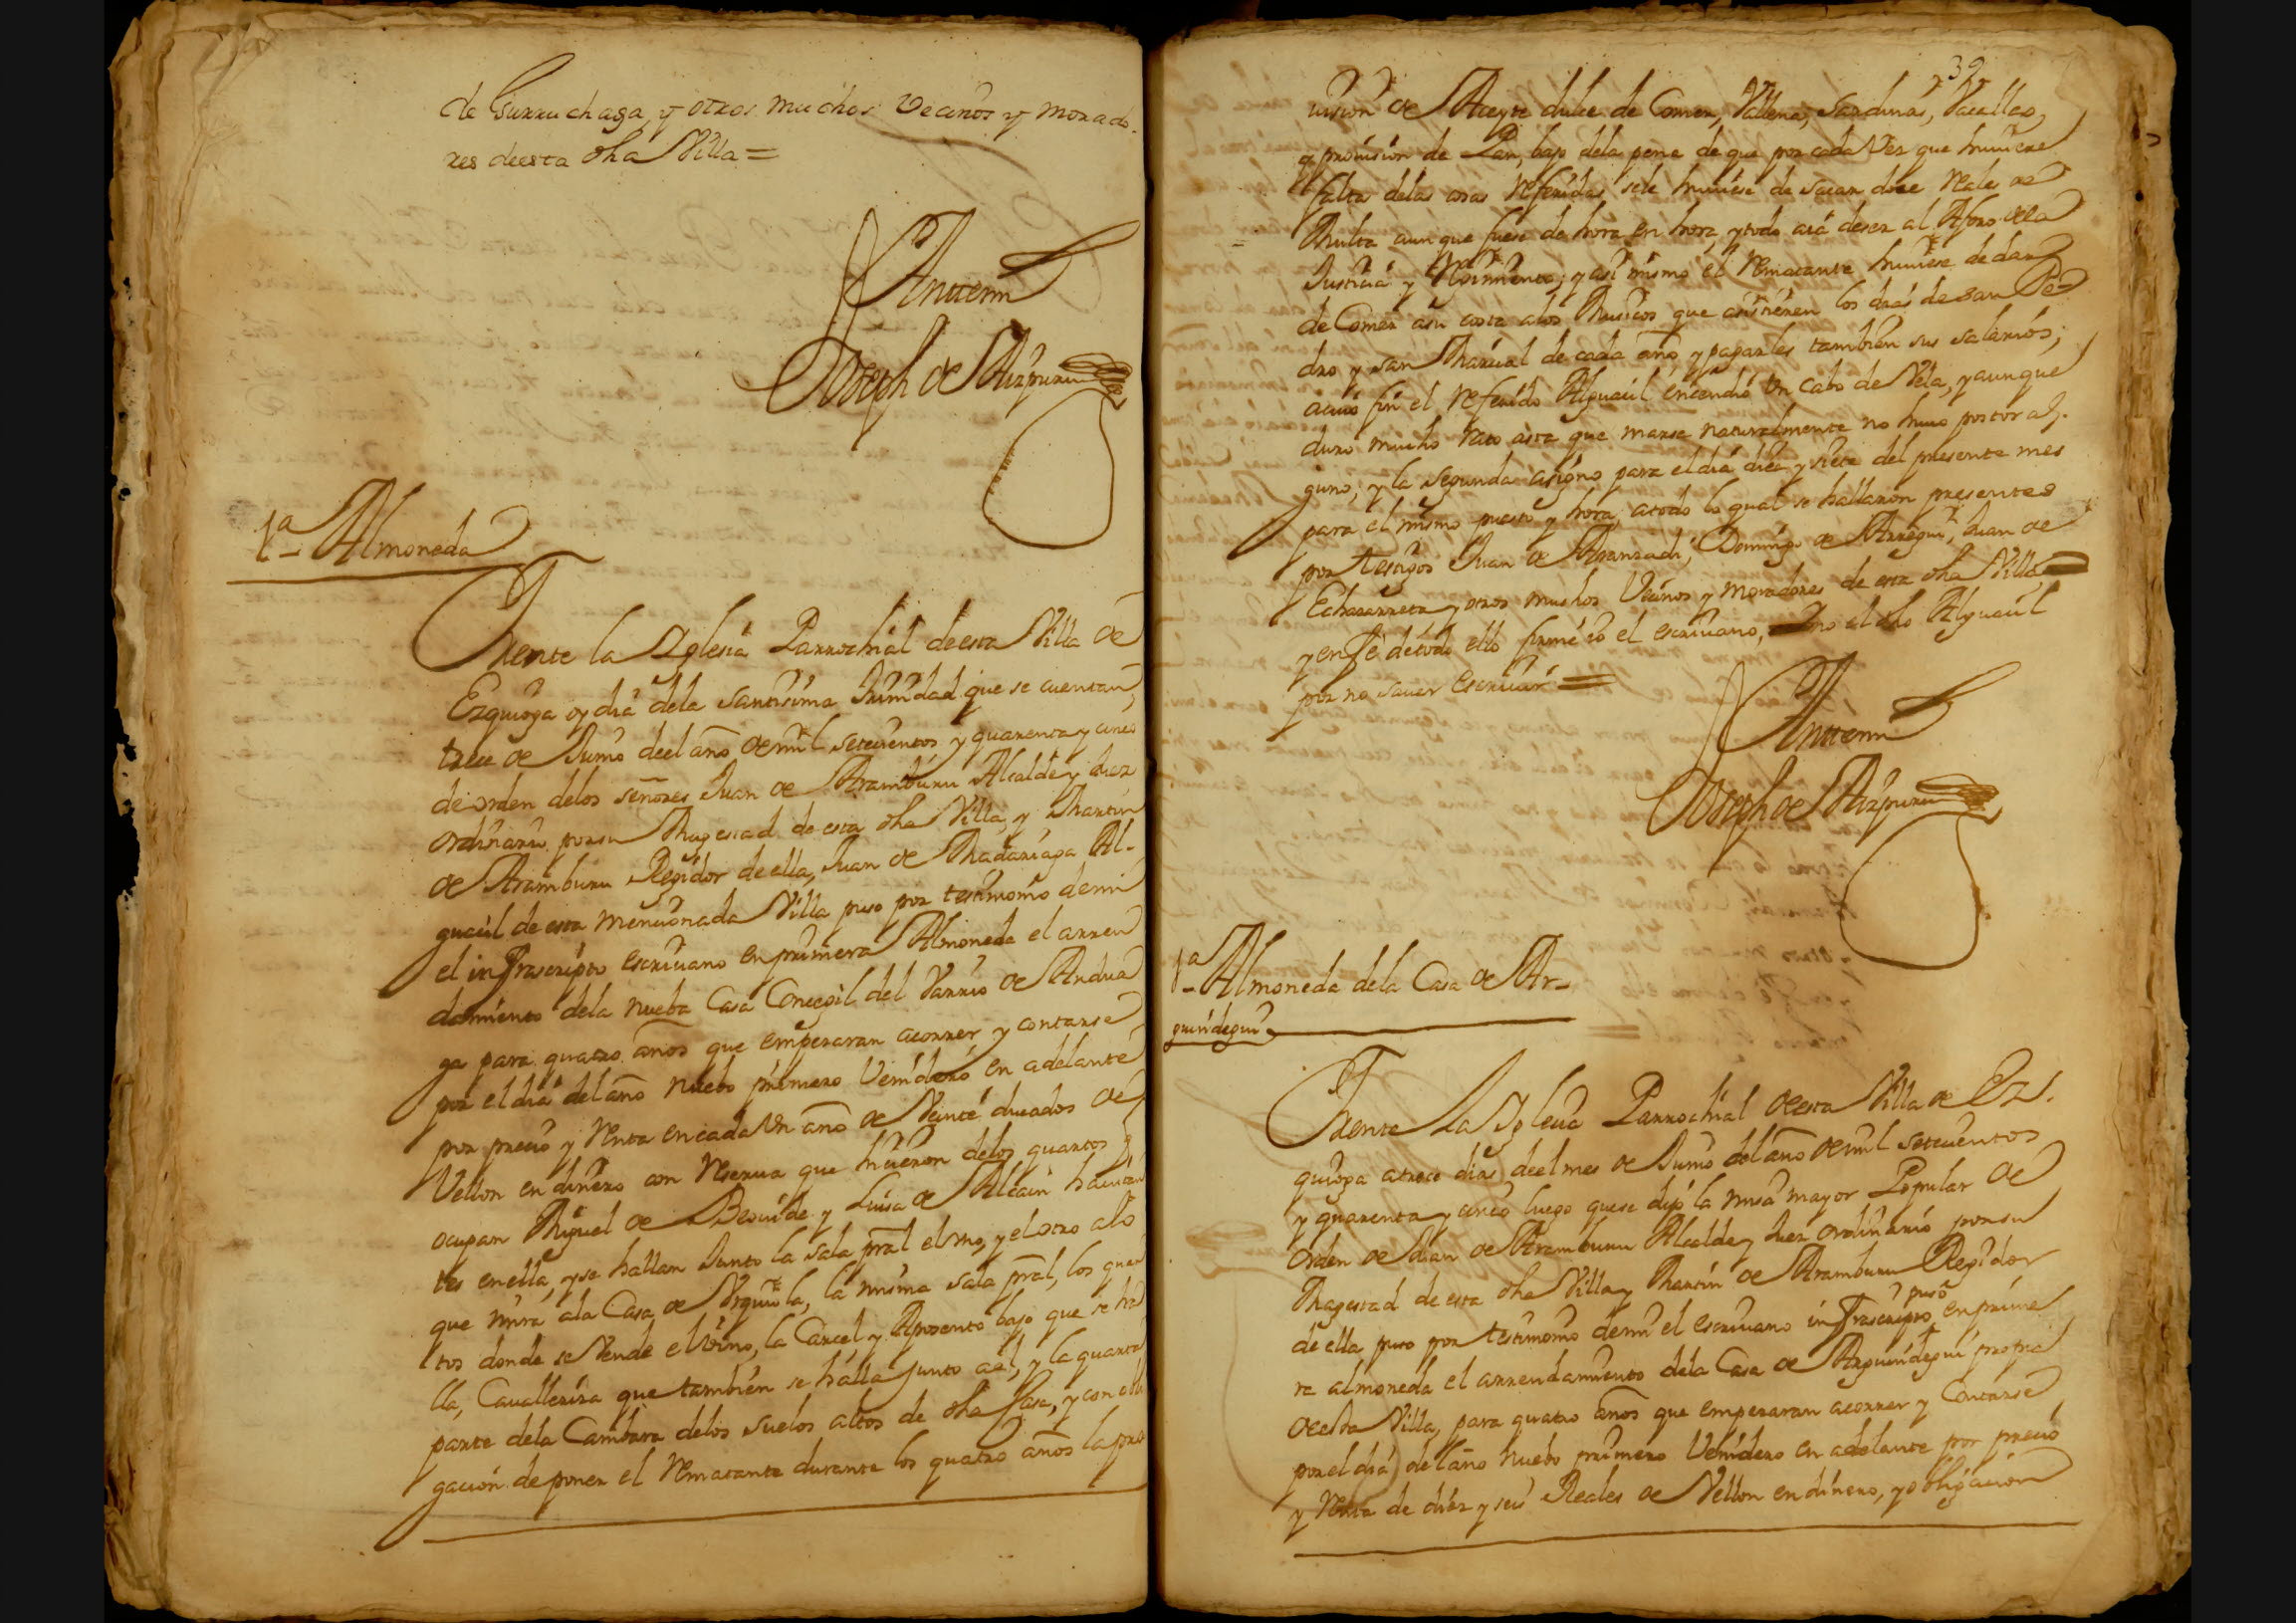 de Gurruchaga, y otros muchos Vecinos y morado-
res deesta dha Villa =
Antemi
Joseph de Aizpuru
1a Almoneda
Frente la Iglesia Parrochial deesta Villa de
Ezquioga oy dia dela santisima trinidad que se cuentan,
trece de Junio deel año de mil setecientos y quarenta y cinco
de orden delos señores Juan de Aramburu Alcalde y Juez
ordinario por su Magestad de esta dha Villa, y Martin
de Aramburu Regidor de ella, Juan de Madariaga Al-
guacil de esta mencionada Villa puso por testimonio demi
el infrascripto escriuano en primera Almoneda el arren
damiento dela nueba Casa Concegil del Varrio de Andua
ga para quatro años que empezaran acorrer y contarse
por el dia del año nuebo primero Venidero en adelante
por precio y Renta en cada Vn año de Veinte ducados de
Vellon en dinero con Reserua que hicieron delos quartos q
ocupan Miguel de Beouide y Luisa de Alcain hauitan
tes en ella, y se hallan Junto la sala pral el vno, y el otro alo
que mira ala Casa de Vrquiola, la misma sala pral, los quar
tos donde se Vende el Vino, la Carcel, y Aposento bajo que se ha
lla, Caualleriza que tambien se halla junto ael, y la quarta
parte dela Cambara delos suelos altos de dha Casa, y con obli
gacion de poner el Rematante durante los quatro años la pro
39
uision de Aceyte dulce de Comer, Vallena, Sardinas, Vacallao,
y prouision de Pan, bajo dela pena de que por cada Vez que huuiere
falta delas cosas Referidas sele huuiese de sacar doce Reales de
Multa aunque fuese de hora en hora, y todo aia deser al Aforo dela
Justicia y Regimiento; y asi mismo el Rematante huuiese de dar
de Comer asu costa alos Musicos que asistieren los dias de San Pe-
dro y san Marcial de cada año y pagarles tambien sus salarios;
acuio fin el Referido Alguacil encendio Vn cabo de Vela, y aunque
duro mucho rato asta que marse naturalmente no huuo postor al-
guno; y la segunda asigno para el dia diez y siete del presente mes
para el mismo puesto y hora, atodo lo qual se hallaron presentes
por testigos Juan de Aranzadi, Domingo de Arregui, Juan de
Echezarreta y otros muchos Vecinos y moradores de esta dha Villa
y en fe detodo ello firmé yo el escriuano, no el dho Alguacil
por no sauer escriuir =
Antemi
Joseph de Aizpuru
1a Almoneda dela Casa de Ar-
guindegui
Frente La Iglesia Parrochial deesta Villa de Ez-
quioga atrece dias deel mes de Junio del año de mil setecientos
y quarenta y cinco luego que se dijo la misa mayor Popular de
orden de Juan de Aramburu Alcalde y Juez ordinario por su
Magestad de esta dha Villa y Martin de Aramburu Regidor
de ella puso por testimonio demi el escriuano infrascripto puso en prime
ra almoneda el arrendamiento dela Casa de Arguindegui propia
deesta Villa, para quatro años que empezaran acorrer y Contarse
por el dia del año nuebo primero Venidero en adelante por precio
y Renta de diez y seis Reales de Vellon en dinero, y obligacion